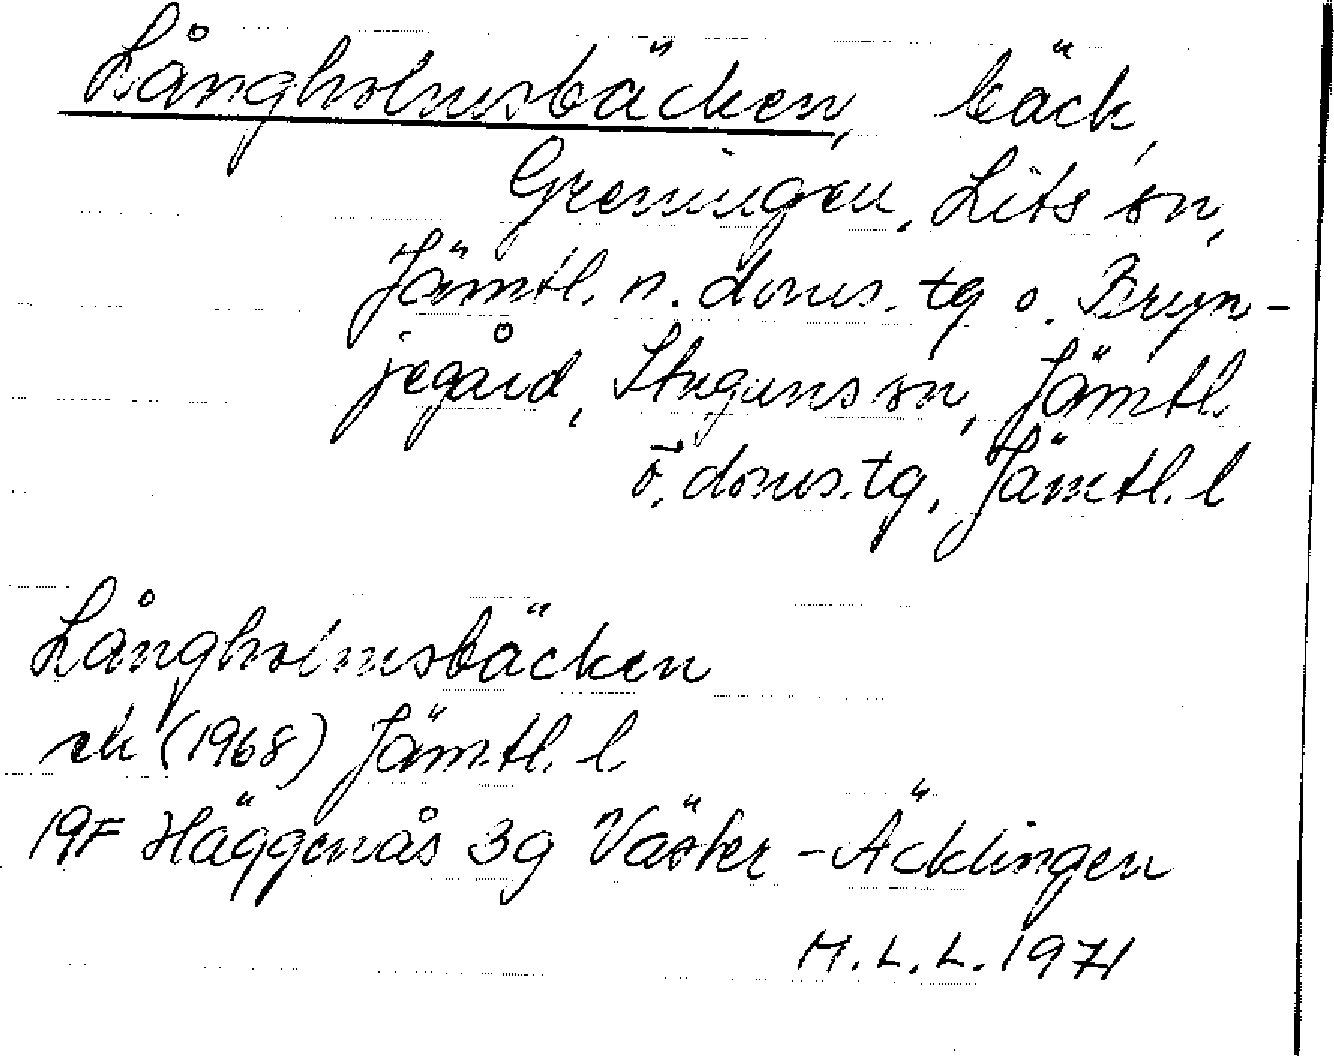 Långholmsbäcken, bäck,
Greningen, Lits sn,
Jämtl. n. doms. tg o. Bryn-
jegård, Stuguns sn, Jämtl.
ö. doms. tg, Jämtl. l
Långholmsbäcken
ek (1968) Jämtl. l.
19F Häggenås 3g Väster-Äcklingen
M.L.L. 1971